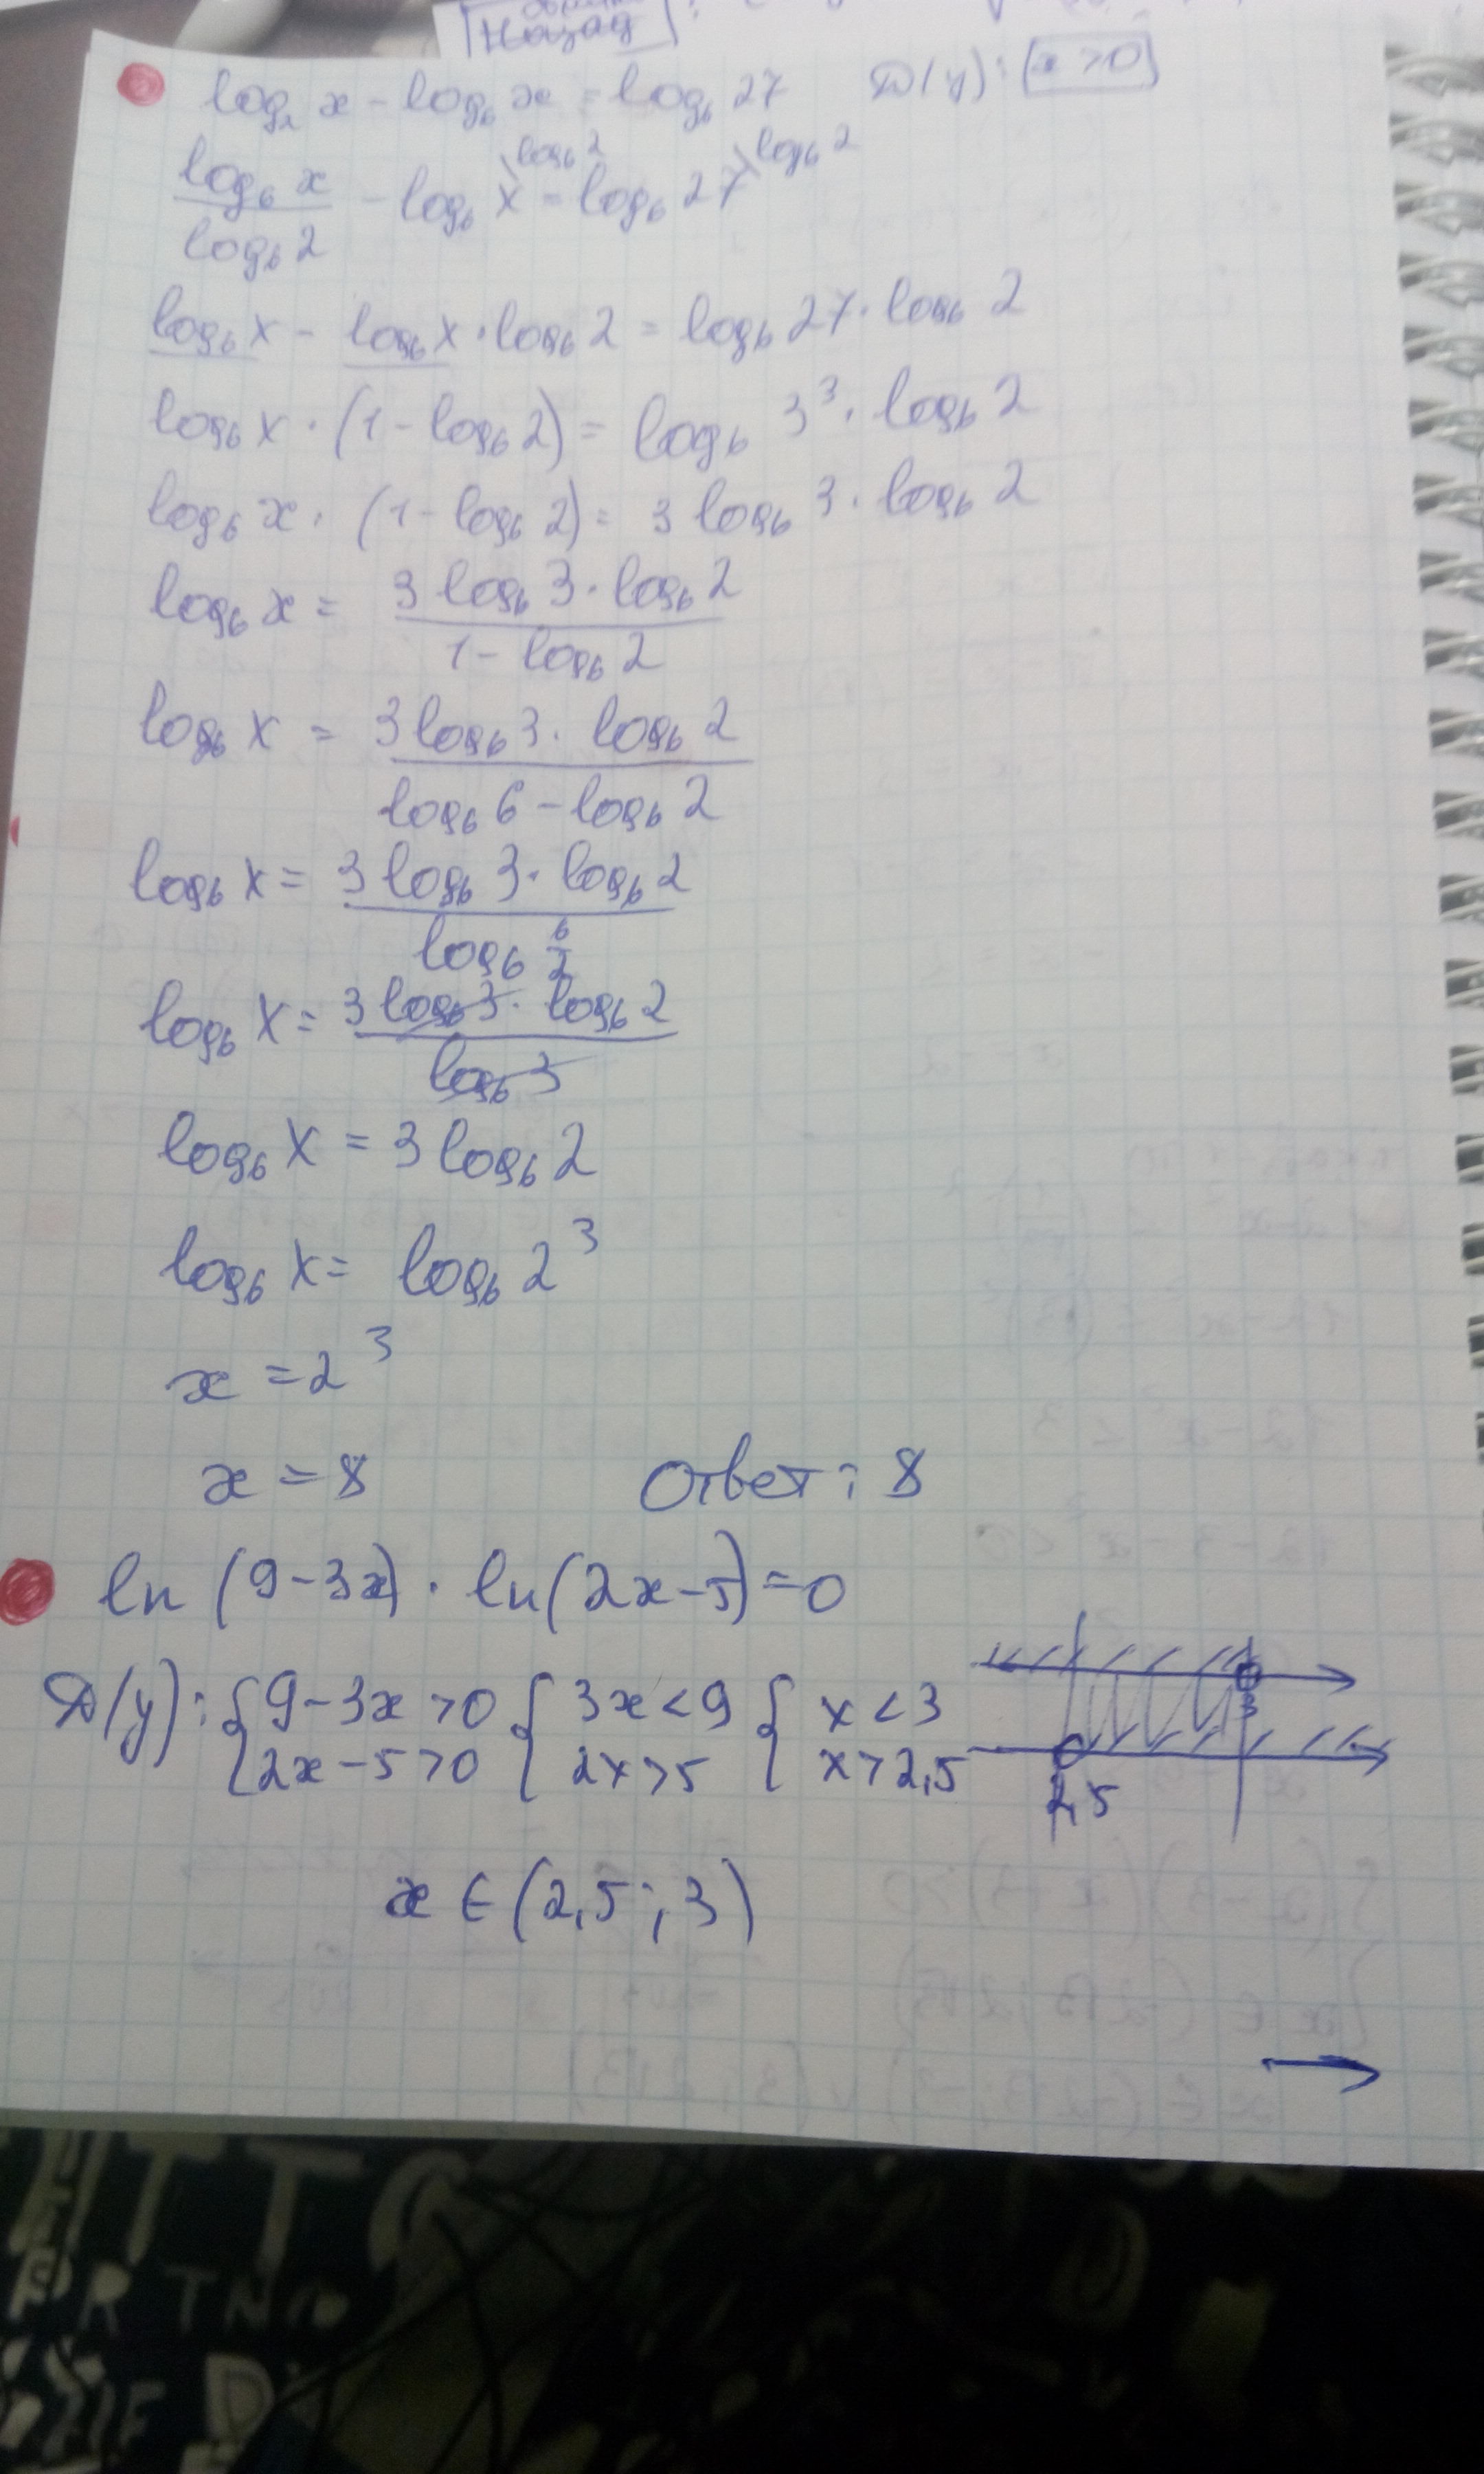 Назад
log₂ x - log₆ x = log₆ 27 D(y): x > 0
log₆ x / log₆ 2 - log₆ x \log₆ 2 = log₆ 27 \log₆ 2
log₆ x - log₆ x · log₆ 2 = log₆ 27 · log₆ 2
log₆ x · (1 - log₆ 2) = log₆ 3³ · log₆ 2
log₆ x · (1 - log₆ 2) = 3 log₆ 3 · log₆ 2
log₆ x = 3 log₆ 3 · log₆ 2 / 1 - log₆ 2
log₆ x = 3 log₆ 3 · log₆ 2 / log₆ 6 - log₆ 2
log₆ x = 3 log₆ 3 · log₆ 2 / log₆ 6/2
log₆ x = 3 log₆ 3 · log₆ 2 / log₆ 3
log₆ x = 3 log₆ 2
log₆ x = log₆ 2³
x = 2³
x = 8 Ответ: 8
ln (9-3x) · ln (2x-5) = 0
D(y): { 9-3x > 0 { 3x < 9 { x < 3 3
2x-5 > 0 2x > 5 x > 2,5 2,5
x ∈ (2,5; 3)